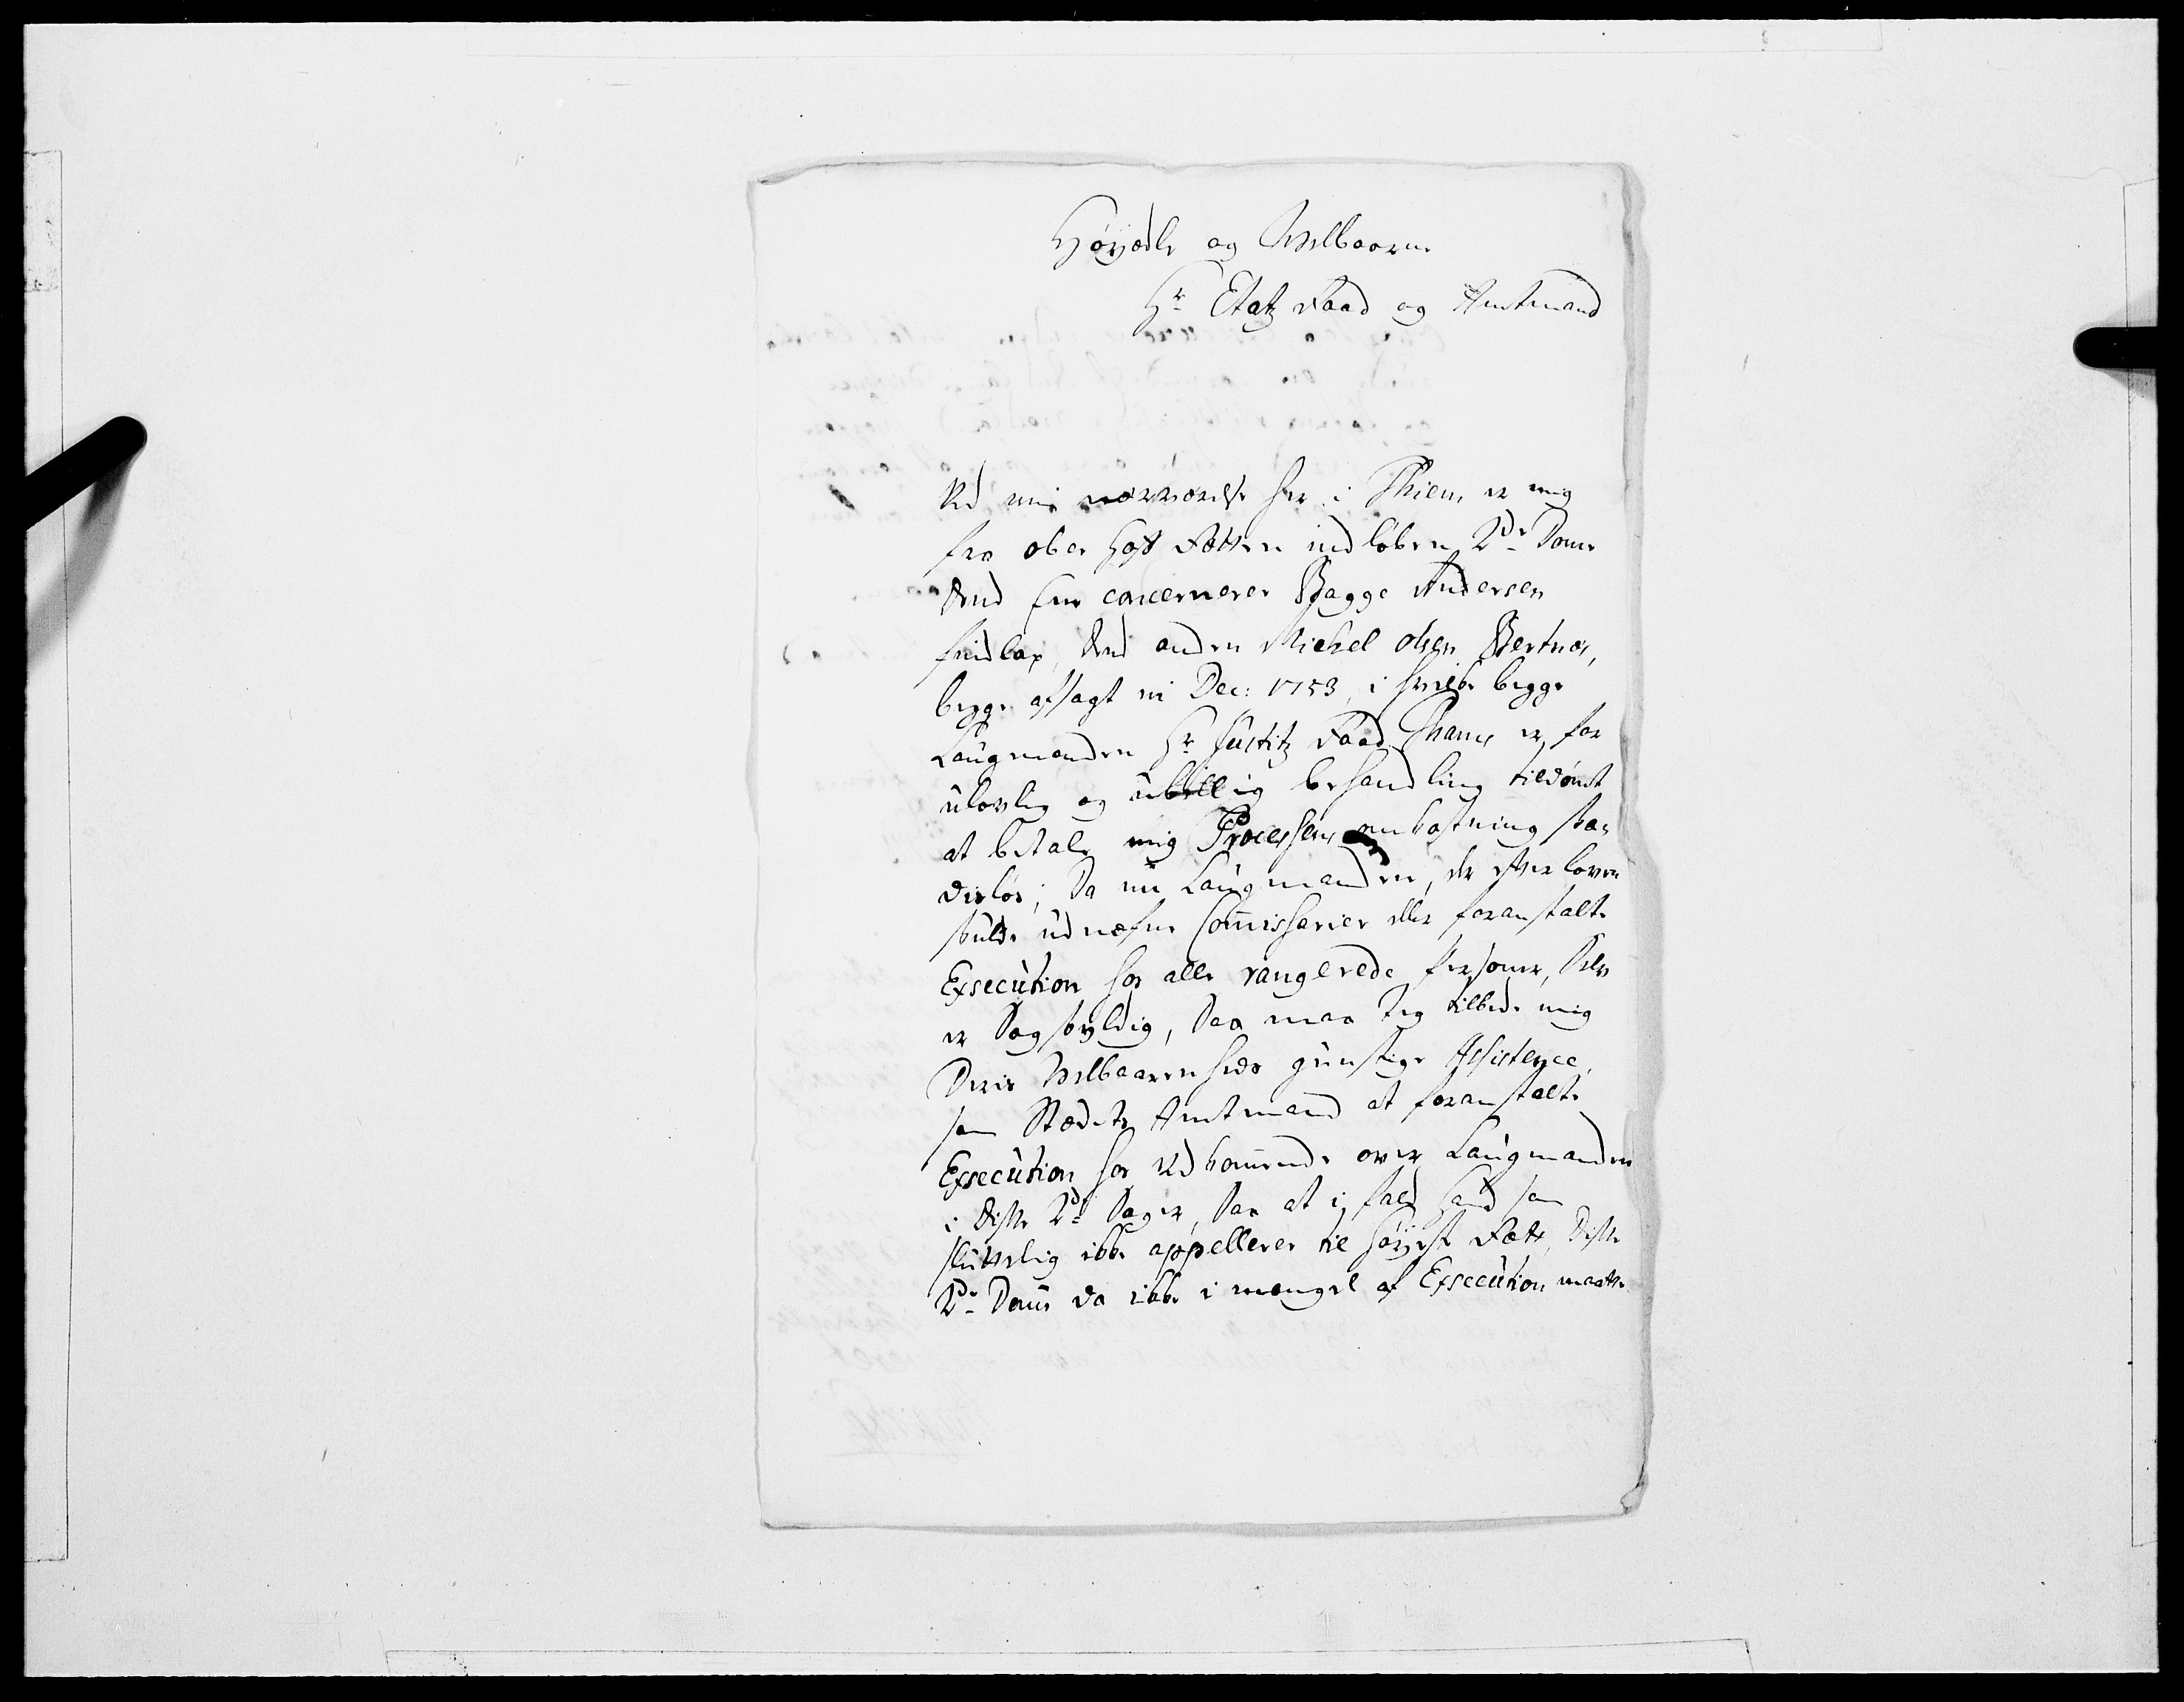 Høyædle og Welbaarne
Hr Etatz Raad og Amtmand
Ved min nærværelse her i Thiem, er mig
fra ober Hoff Rætten indløben 2de Domme
dend eene concernerer Bagge Andersen
findlax, dend anden Michel olsen Bertnæs,
begge afsagt in Dec: 1753, i hvilke begge
Laugmanden Hr Justitz Raad Thams er for
ulovlig og ubillig behandling tildømt
at betale mig Processens omkostning ska-
desløs; Da nu Laugmanden, der efter loven
skulde udnefne Commissarier eller foranstalte
Exsecution hos alle rangerede Persoener, Selv
er Sagskyldig, Saa maa Jeg tilbede mig
Deris Welbaarenheds gunstige Assistence,
som Stædets Amtmand at foranstalte
Exsecution hos vedkommende over Laugmanden
i disse 2de Sager, Saa at i fald hand som
skutterlig ikke appellerer til høyeste Ræt, disse
2de Domme da ikke i mangel af Exsecution maatte